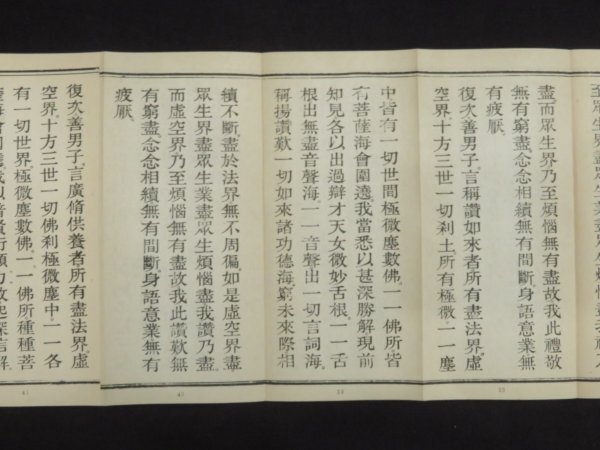 至眾生界盡眾生業盡眾生煩惱盡我禮乃
盡而眾生界乃至煩惱無有盡故我此禮敬
無有窮盡念念相續無有間斷身語意業無
有疲厭
復次善男子言稱讚如來者所有盡法界虛
空界十方三世一切剎土所有極微一一塵
中皆有一切世間極微塵數佛一一佛所皆
有菩薩海會圍遶我當悉以甚深勝解現前
知見各以出過辯才天女微妙舌根一一舌
根出無盡音聲海一一音聲出一切言詞海
稱揚讚歎一切如來諸功德海窮未來際相
續不斷盡於法界無不周徧如是虛空界盡
眾生界盡眾生業盡眾生煩惱盡我讚乃盡
而虛空界乃至煩惱無有盡故我此讚歎無
有窮盡念念相續無有間斷身語意業無有
疲厭
復次善男子言廣脩供養者所有盡法界虛
空界十方三世一切佛剎極微塵中一一各
有一切世界極微塵數佛一一佛所種種菩
39
40
41